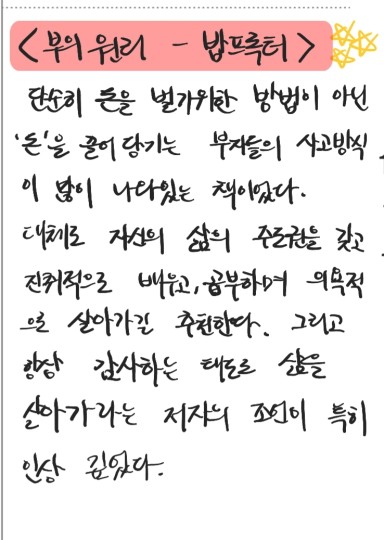 <부의 원리 - 밥프록터>
단순히 돈을 벌기위한 방법이 아닌
'돈'을 끌어 당기는 부자들의 사고방식
이 많이 나타있는 책이었다.
대체로 자신의 삶의 주도권을 갖고
진취적으로 배우고, 공부하며 의욕적
으로 살아가길 추천한다. 그리고
항상 감사하는 태도로 삶을
살아가라는 저자의 조언이 특히
인상 깊었다.